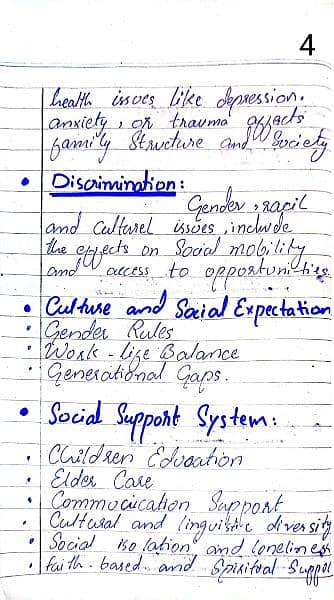 4
health issues like depression.
anxiety, or trauma affects
family Structure and Society
• Discrimination:
Gender, racil
and Culturel issues, include
the effects on Social mobility
and access to opportunities.
• Culture and Social Expectation
• Gender Rules
• Work-life Balance
• Generational Gaps.
• Social Support System:
• Children Education
• Elder Care
• Commucication Support
• Cultural and linguistic diversity
• Social isolation, and loneliness
• Faith-based and Spiritual Suppot